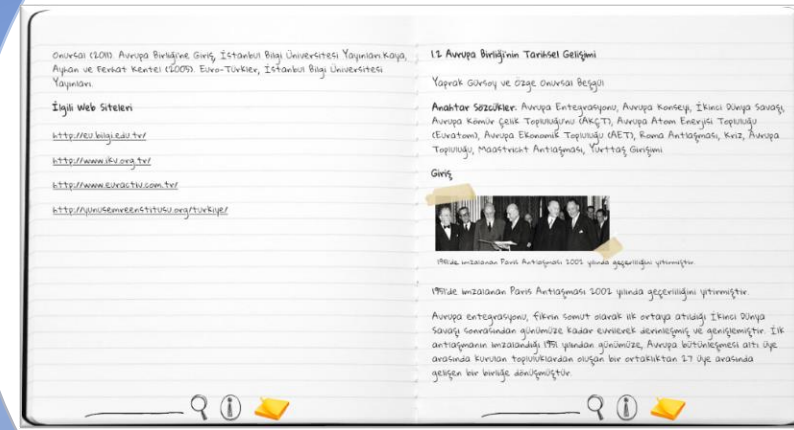 Onursal (2011). Avrupa Birliği'ne Giriş, İstanbul Bilgi Üniversitesi Yayınları Kaya,
Ayhan ve Ferhat Kentel (2005). Euro-Türkler, İstanbul Bilgi Üniversitesi
Yayınları.
İlgili Web Siteleri
http://eu.bilgi.edu.tr/
http://www.ikv.org.tr/
http://www.euractiv.com.tr/
http://yunusemreenstitusu.org/turkiye/
1.2 Avrupa Birliği'nin Tarihsel Gelişimi
Yaprak Gürsoy ve Özge Onursal Beşgül
Anahtar Sözcükler: Avrupa Entegrasyonu, Avrupa Konseyi, İkinci Dünya Savaşı,
Avrupa Kömür Çelik Topluluğunu (AKÇT), Avrupa Atom Enerjisi Topluluğu
(Euratom), Avrupa Ekonomik Topluluğu (AET), Roma Antlaşması, Kriz, Avrupa
Topluluğu, Maastricht Antlaşması, Yurttaş Girişimi.
Giriş
1951'de imzalanan Paris Antlaşması 2002 yılında geçerliliğini yitirmiştir.
1951'de imzalanan Paris Antlaşması 2002 yılında geçerliliğini yitirmiştir.
Avrupa entegrasyonu, fikrin somut olarak ilk ortaya atıldığı İkinci Dünya
Savaşı sonrasından günümüze kadar evrilerek derinleşmiş ve genişlemiştir. İlk
antlaşmanın imzalandığı 1951 yılından günümüze, Avrupa bütünleşmesi altı üye
arasında kurulan topluluklardan oluşan bir ortaklıktan 27 üye arasında
gelişen bir birliğe dönüşmüştür.